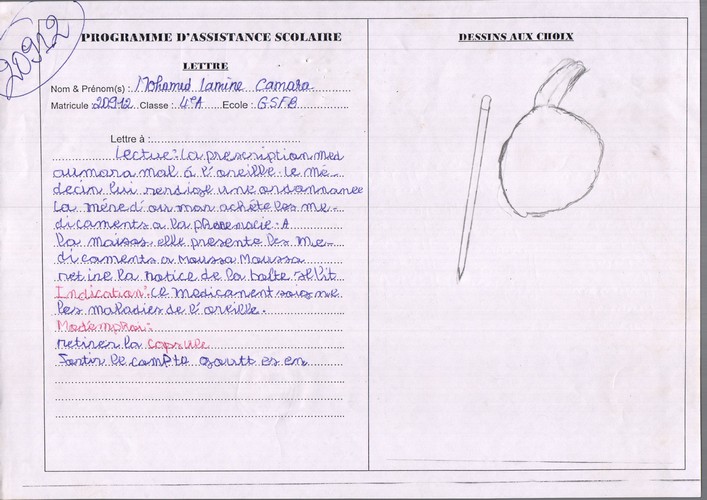 20912
PROGRAMME D'ASSISTANCE SCOLAIRE
LETTRE
Nom & Prénom(s) : Mohamed Lamine Camara
Matricule 20912 Classe : 4eA Ecole : GSFB
Lettre à :
Lectue : La prescription med
oumara mal à l'oreille. le mé
decin lui rerdige une ordonnance
La mère d'oumar achète les me
dicaments a la pharmacie. A
la maison elle presente les me
dicaments a Moussa Moussa
retire la notice de la boîte Il lit
Indication : ce medicament soigne
les maladies de l'oreille.
retirer la capsule
Sortir le compte goutt es en
DESSINS AUX CHOIX